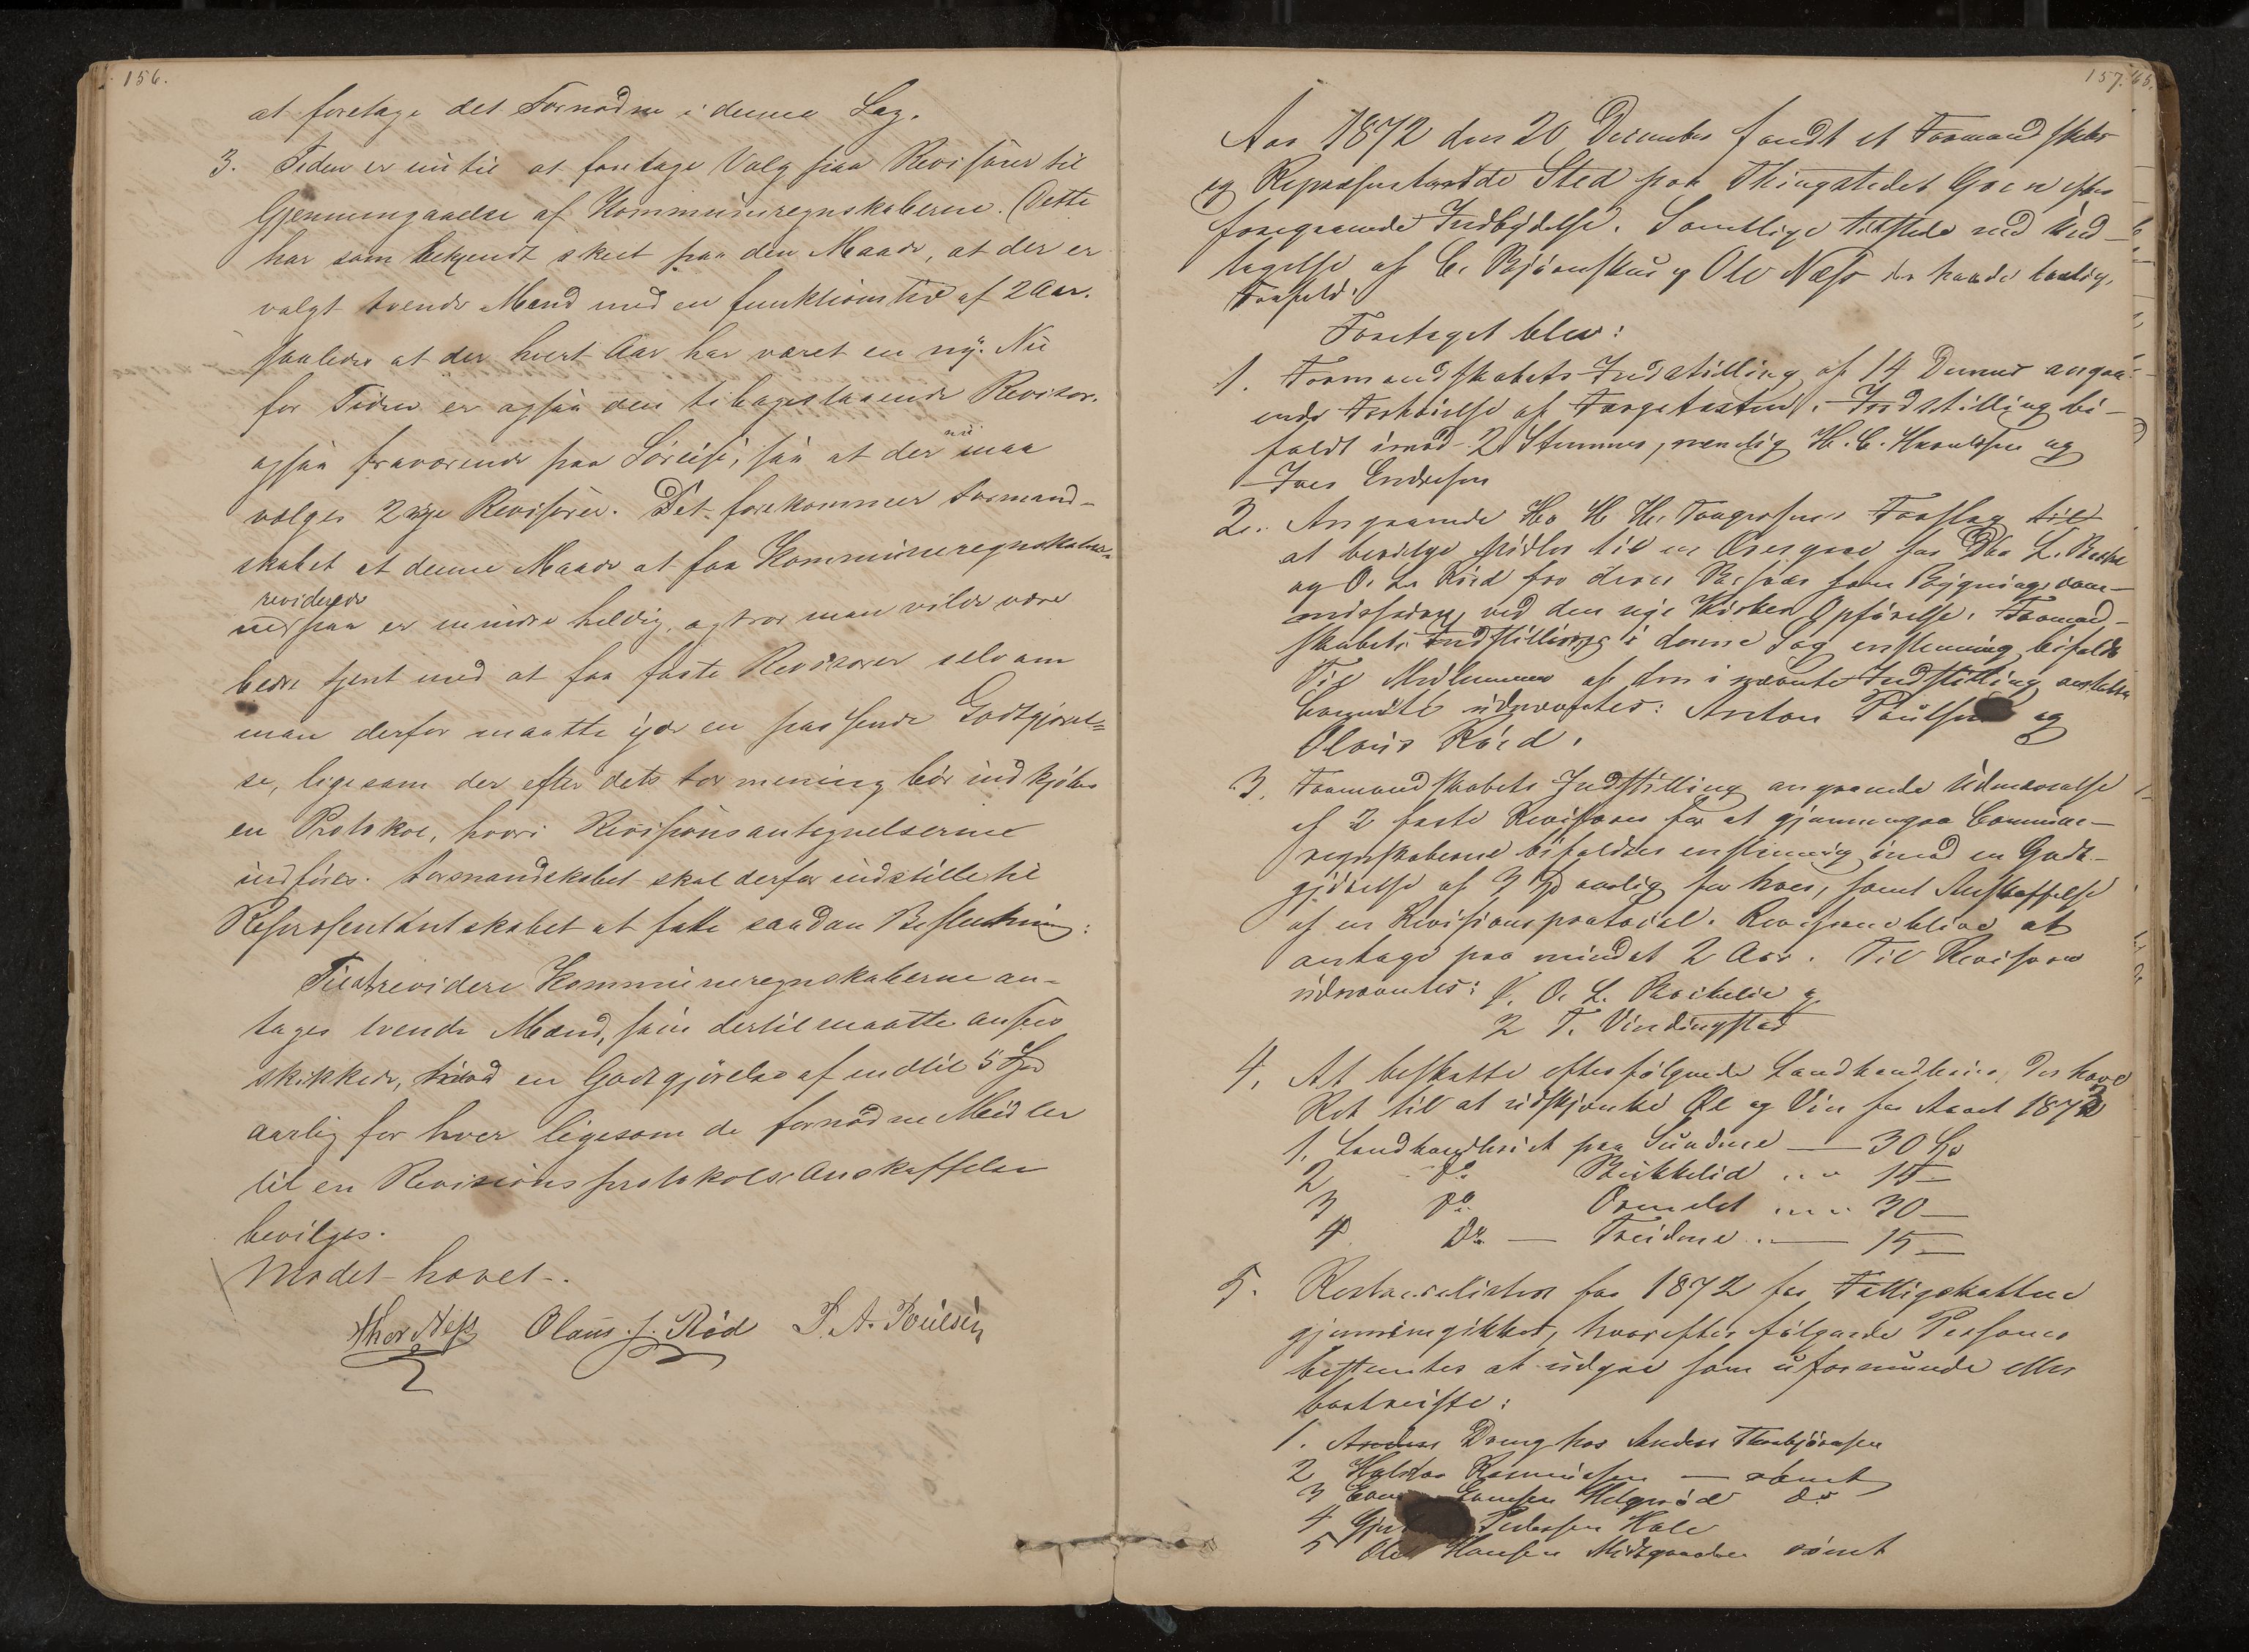 156.
at foretage det Fornødne i denne Sag.
3. Tiden er nu til at foretage Valg paa Revisorer til
Gjennemgaaelse af Kommuneregnskaberne. Dette
har som bekjendt skeet paa den Maade, at der er
valgt tvende Mænd med en funktionstid af 2 Aar.
saaledes at der hvert Aar har været en ny. Nu
for Tiden er ogsaa den tilbagestaaende Revisor.
ogsaa fraværende paa Søreise, saa at der nu maa
vælges 2 nye Revisorer. Det forekommer Formand-
skabet at denne Maade at faa Kommuneregnskaberne
revideret
paa er mindre heldig, og tror man vilde være
bedre tjent med at faa faste Revisorer selv om
man derfor maatte yde en passende Godtgjørel=
se, ligesom der efter dets formening bør indkjøbes
en Protokol, hvori Revisionsantegnelserne
indføres. Formandskabet skal derfor indstille til
Repræsentantskabet at fatte saadan Beslutning:
Til at revidere Kommuneregnskaberne an-
tages tvende Mænd, som dertil maatte ansees
skikkede, imod en Godtgjørelse af indtil 5 Spd
aarlig for hver ligesom de fornødne Midler
til en Revisionsprotokols Anskaffelse
bevilges.
Mødet hævet.
Thor Næss Olaus J. Röd P. A. Poulsen
157. 65.
Aar 1872 den 20 December fandt et Formandskabs
og Repræsentantmøde Sted paa Thingstedet Goen efter
foregaaende Indbydelse. Samtlige tilstede med Und-
tagelse af C. Bjørnskau og Ole Næss der havde lovlig
Forfald.
Foretaget blev:
1. Formandskabets Indstilling af 14 Dennes angaa-
ende Forhøielse af Indstilling bi-
faldt imod 2 Stemmer, nemlig H. C. Knudsen og
Iver Endresen
2. Angaaende H. Torgersens Forslag til
at bevilge Midler til en Æresgave for L. Bache
og O. L. Röed for deres som Bygningscom-
missionen ved den nye Kirkes Opførelse. Formand-
skabets Indstilling i denne Sag enstemmig bifaldt
Til Medlemmer af den i nævnte Indstilling
Comite udnævntes: Anton Poulsen og
Olaus Röed.
3. Formandskabets Indstilling angaaende Udnævnelse
af 2 faste Revisorer for at gjennemgaa Commune-
regnskaberne bifaldtes enstemmig imod en Godt-
gjørelse af 3 Spd aarlig for hver, samt Anskaffelse
af en Revisionsprotocol. Revisorerne blive at
antage paa mindst 2 Aar. Til Revisorer
udnævntes: 1. O. L. Backelie og
2 T. Vindingstad
4. At beskatte efterfølgende Landhandlerier, der have
Ret til at udskjænke Øl og Vin for Aaret 1873
1. Landhandleriet paa Sundene — 30 Spd
2 Do Bakkelid 15 —
3 Do Ormelet 30 —
4 Do — Treidene — 15 —
5. Restancelisten for 1872 for Fattigskatten
gjennemgikkes, hvorefter følgende Personer
bestemtes at udgaa som uformuende eller
bortreiste:
1. Dreng hos Anders Thorbjørnsen
2 Halvor Rasmussen — rømt
3 Evensen Helgerød do
4 Pedersen Hale
5 Ole Hansen Midtgaarden rømt